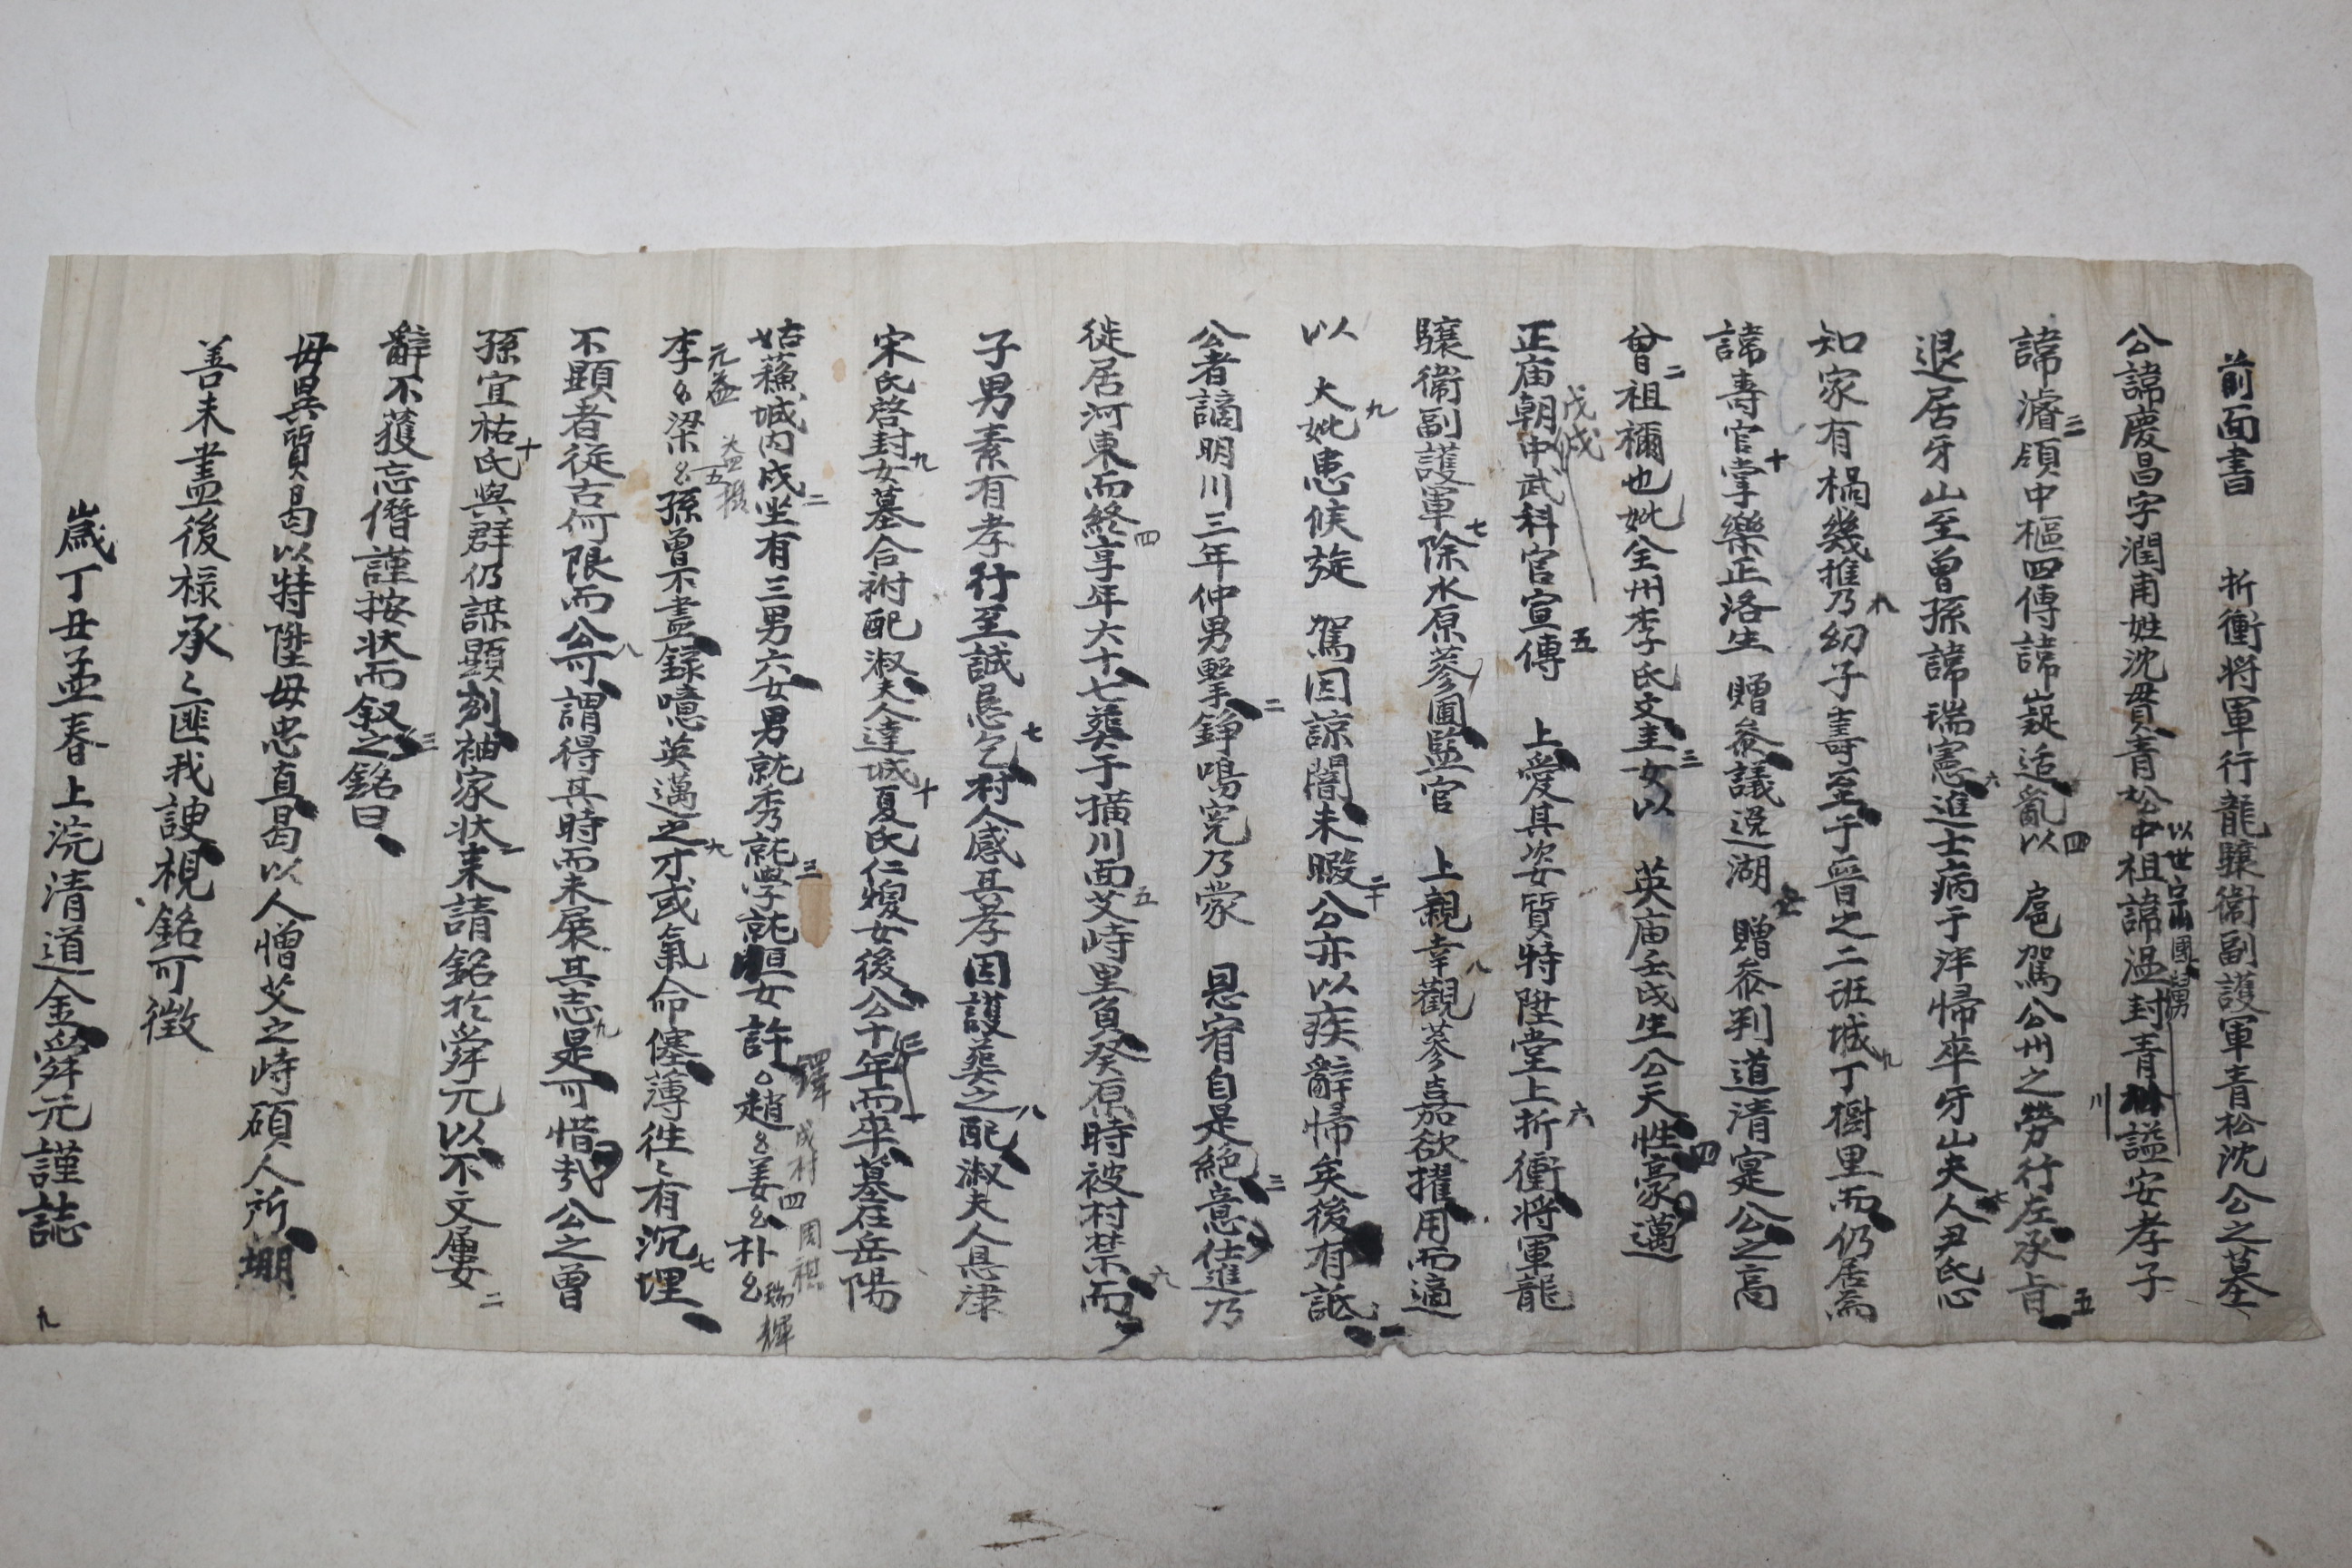 前面書 折衝將軍行龍驤衛副護軍青松沈公之墓
公諱慶昌字潤甫姓沈貫青松中祖諱溫封青川諡安孝子
以世宗國舅
諱濬領中樞四傳諱嶷适亂以 扈駕公州之勞行左承旨
退居牙山至曾孫諱瑞憲進士病于泮歸卒牙山夫人尹氏
知家有禍幾推乃幼子壽至于晉之二班城丁樹里而仍居焉
諱壽官掌樂正洛生 贈參議逸湖 贈參判道清寔公之高
曾祖禰也妣全州李氏文圭女以 英庙壬戌生公天性豪邁
正庙朝中武科官宣傳 上愛其姿質特陞堂上折衝將軍龍
戊戌
驤衛副護軍除水原蔘圃監官 上親幸觀蔘嘉欲擢用而適
以 大妣患候旋 駕因諒闇未暇公亦以疾辭歸矣後有詆
公者謫明川三年仲男擊錚鳴寃乃蒙 恩宥自是絶意仕進乃
徙居河東而終享年六十七葬于橫川面艾峙里負癸原時被村禁而
子男素有孝行至誠忌乞村人感其孝因護葬之配淑夫人恩津
宋氏啓封女墓合祔配淑夫人達城夏氏仁馥女後公十年而卒墓在岳陽
姑蘓城內戌坐有三男六女男就秀就學就恒女許鐸趙姜朴
成村 周祺 瑞輝
李梁孫曾不盡録噫英邁之才或氣命蹇薄徃〻有沉埋
元益
不顯者從古何限而公可謂得其時而未展其志是可惜哉公之曾
孫宜祜氏與群仍謀顯刻袖家狀來請銘於舜元以不文屢
辭不獲忘僭謹按狀而叙之銘曰
毋異質曷以特陞毋忠直曷以人憎艾之峙碩人所堋
善未盡後祿承〻匪我諛視銘可徵
歲丁丑孟春上浣清道金舜元謹誌